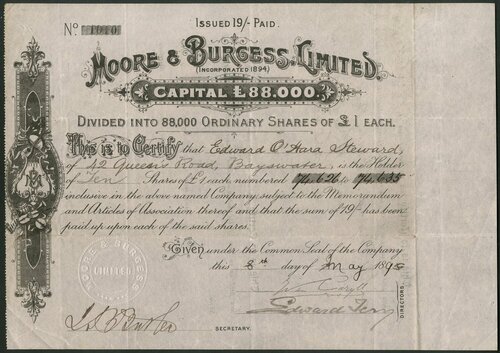 ISSUED 19/- PAID.
No. 1010
MOORE & BURGESS, LIMITED.
(INCORPORATED 1894)
CAPITAL £88,000.
DIVIDED INTO 88,000 ORDINARY SHARES OF £1 EACH.
This is to Certify that Edward O'Hara Steward,
of 42 Queen's Road, Bayswater, is the Holder
of Ten Shares of £1 each numbered 74.626 to 74.635
inclusive in the above named Company, subject to the Memorandum
and Articles of Association thereof and that the sum of 19/- has been
paid up upon each of the said shares.
Given under the Common Seal of the Company
this 8th day of May 189
MOORE & BURGESS
LIMITED
Edward Terry
DIRECTORS.
SECRETARY.